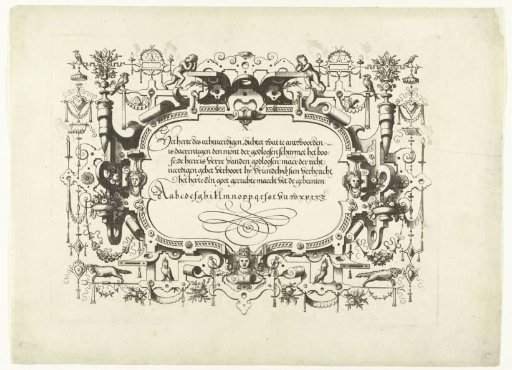 Het herte des rechtverdigen, dichtet wat te antwoorden
is daer entegen den mont der godloosen schuymet het boo-
se. de heere is verre vanden godloosen: maer der recht-
verdigen gebet verhoort hy. Vriendelick sien verheucht
het herte. Een goet geruchte maeckt vet de gebeenten.
A a b c d e f g h i k l m n o p q r s t v u w x y z